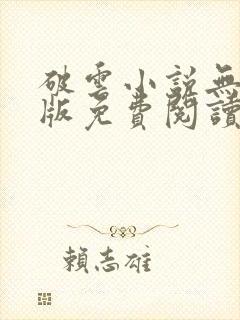 破雲小說無
版免費閱讀
賴志雄